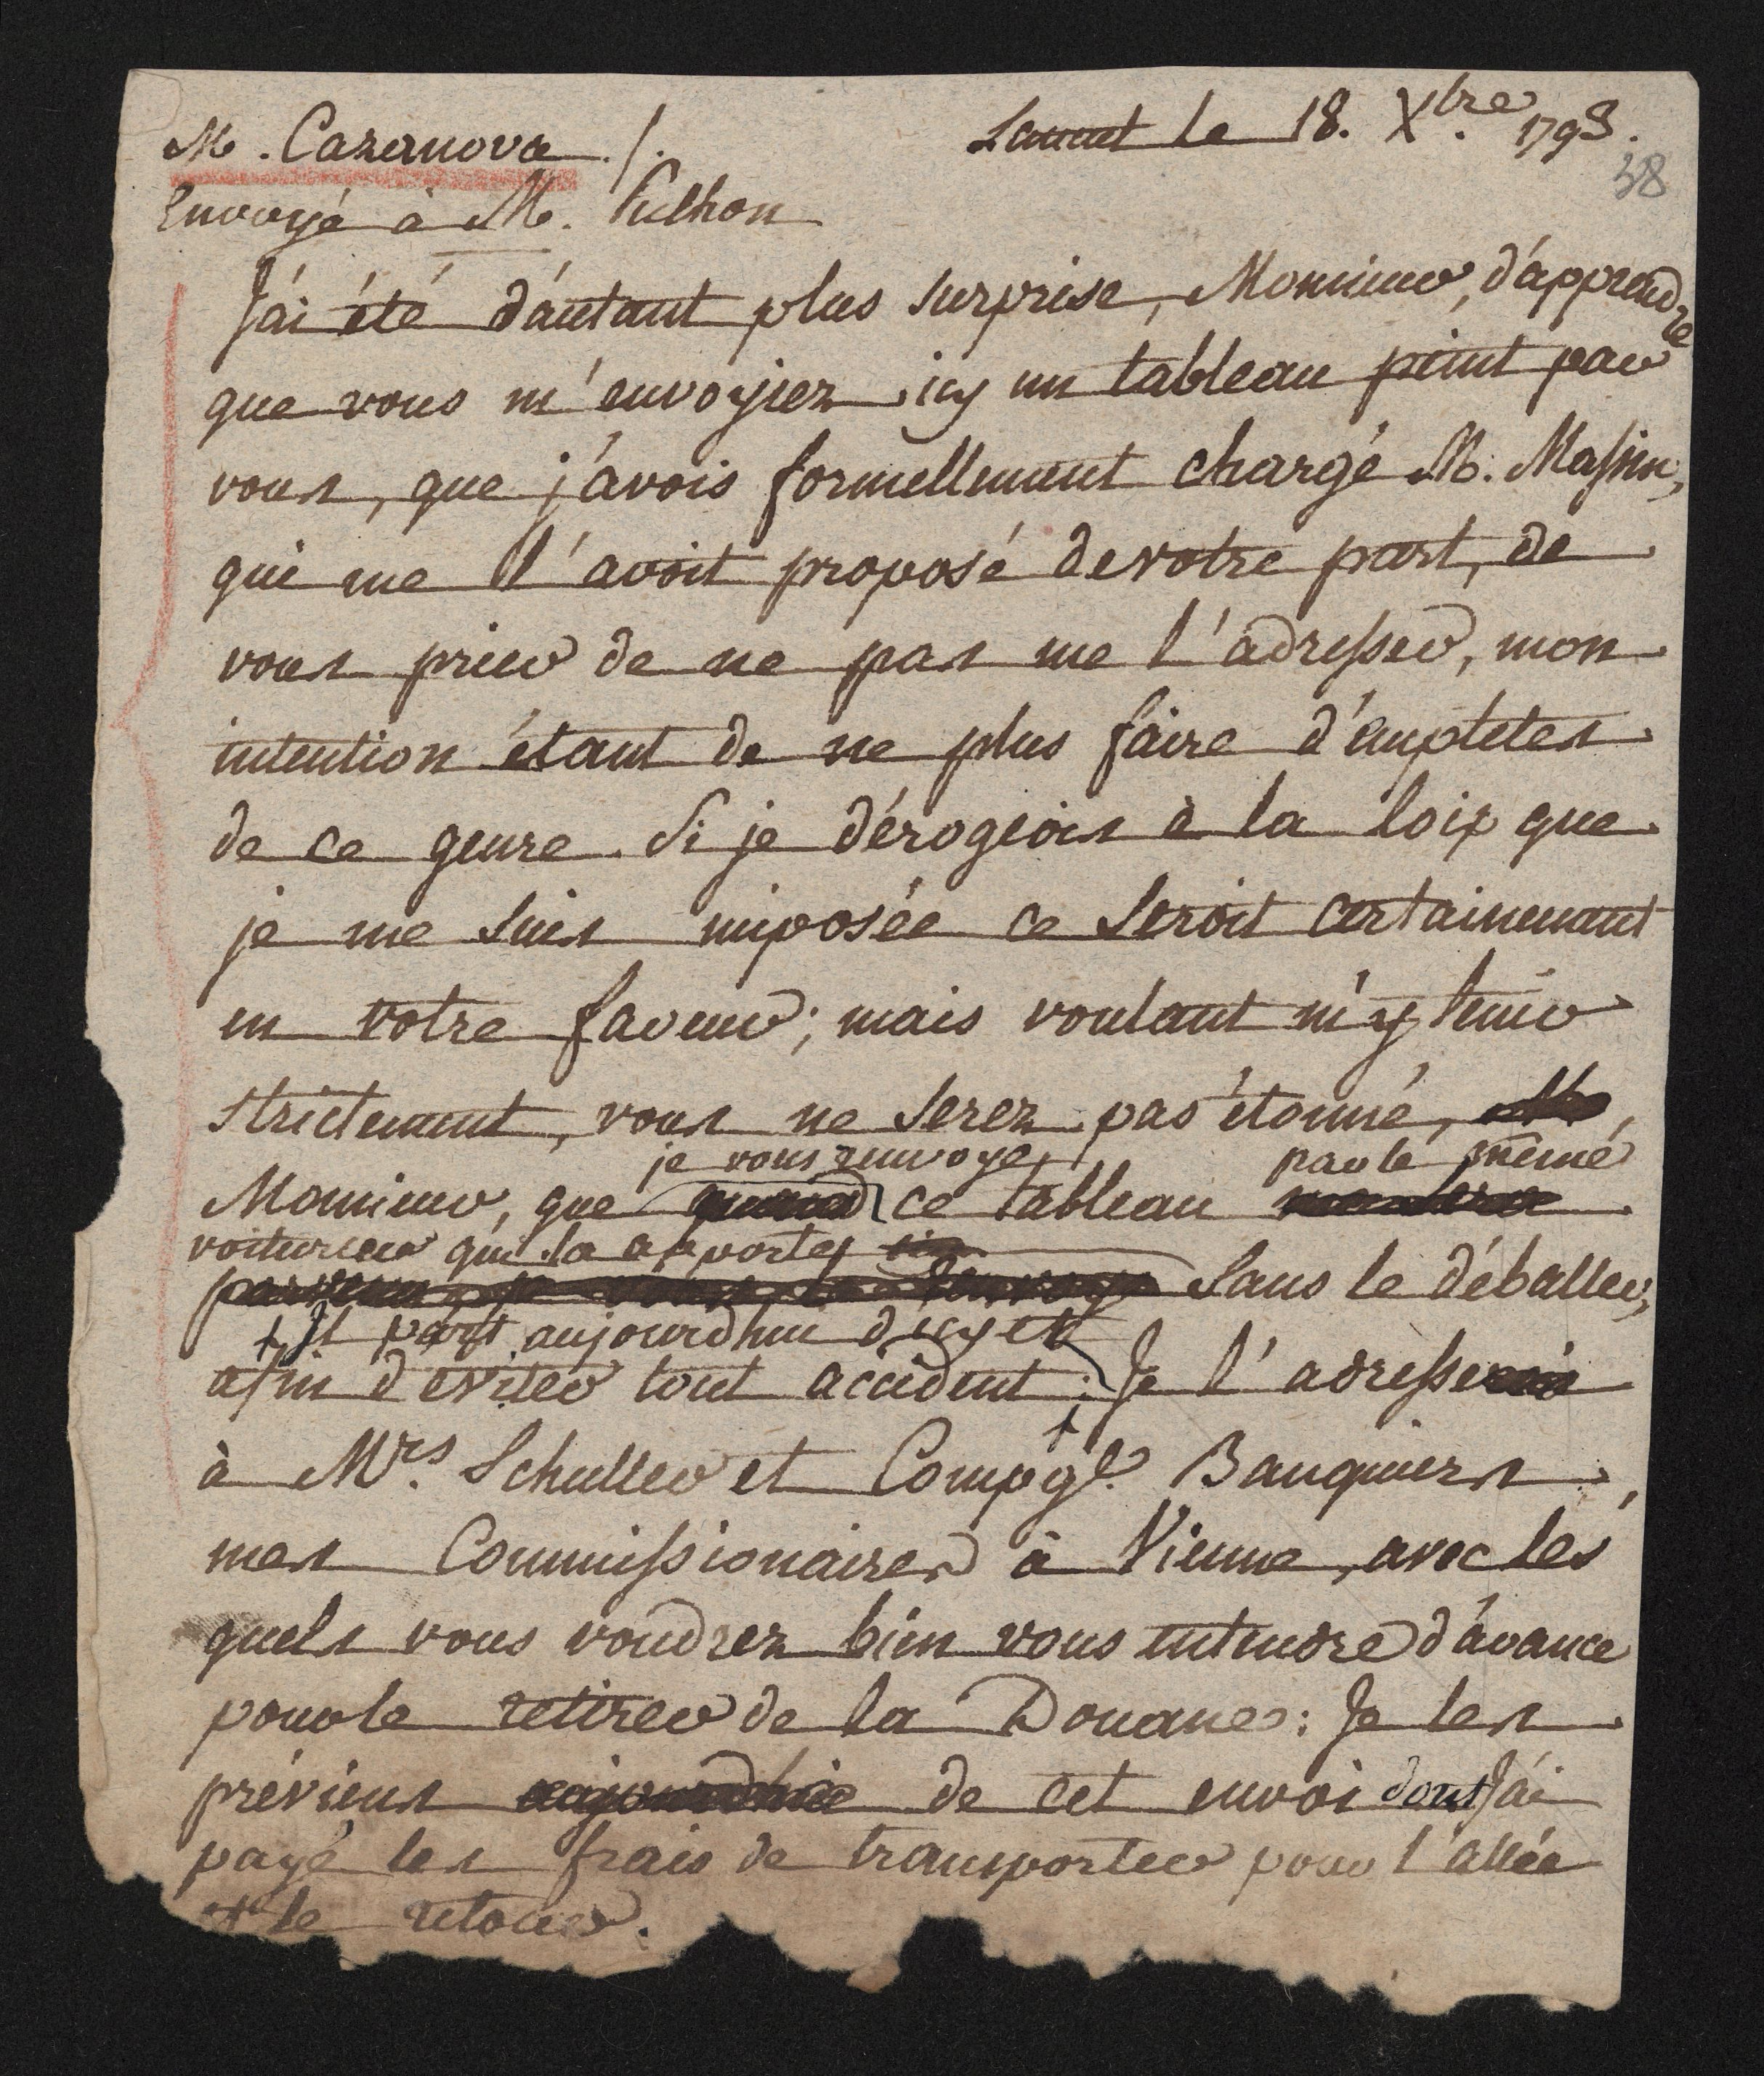 M. Cazanova ./. Lancut le 18. Xbre. 1793.
38
Envoyé à M.
J'ai été d'autant plus surprise, Monsieur, d'apprendre
que vous m'envoyiez icy un tableau peint par
vous, que j'avois formellement chargé M. Massin,
qui me l'avoit proposé de votre part, de
vous prier de ne pas me l'adresser, mon
intention étant de ne plus faire d'empletes
de ce genre. Si je dérogeois à la loix que
je me suis imposée ce seroit certainement
en votre faveur; mais voulant m'y tenir
strictement, vous ne serez pas étonné, M,
je vous renvoye par le même
Monsieur, que quand ce tableau
voiturier qui l'a apporté
parvenu, je vous le renvoye sans le déballer,
+ Il part aujourdhui d'icy et
afin d'eviter tout accident; Je l'adresserois
à Mrs. Schuller et Compgie. Banquiers,
mes Commissionaires à Vienne, avec les
quels vous voudrez bien vous entendre d'avance
pour le retirer de la Douane: Je les
préviens aujourdhui de cet envoi dont J'ai
payé les frais de transporter pour l'allée
et le retour.